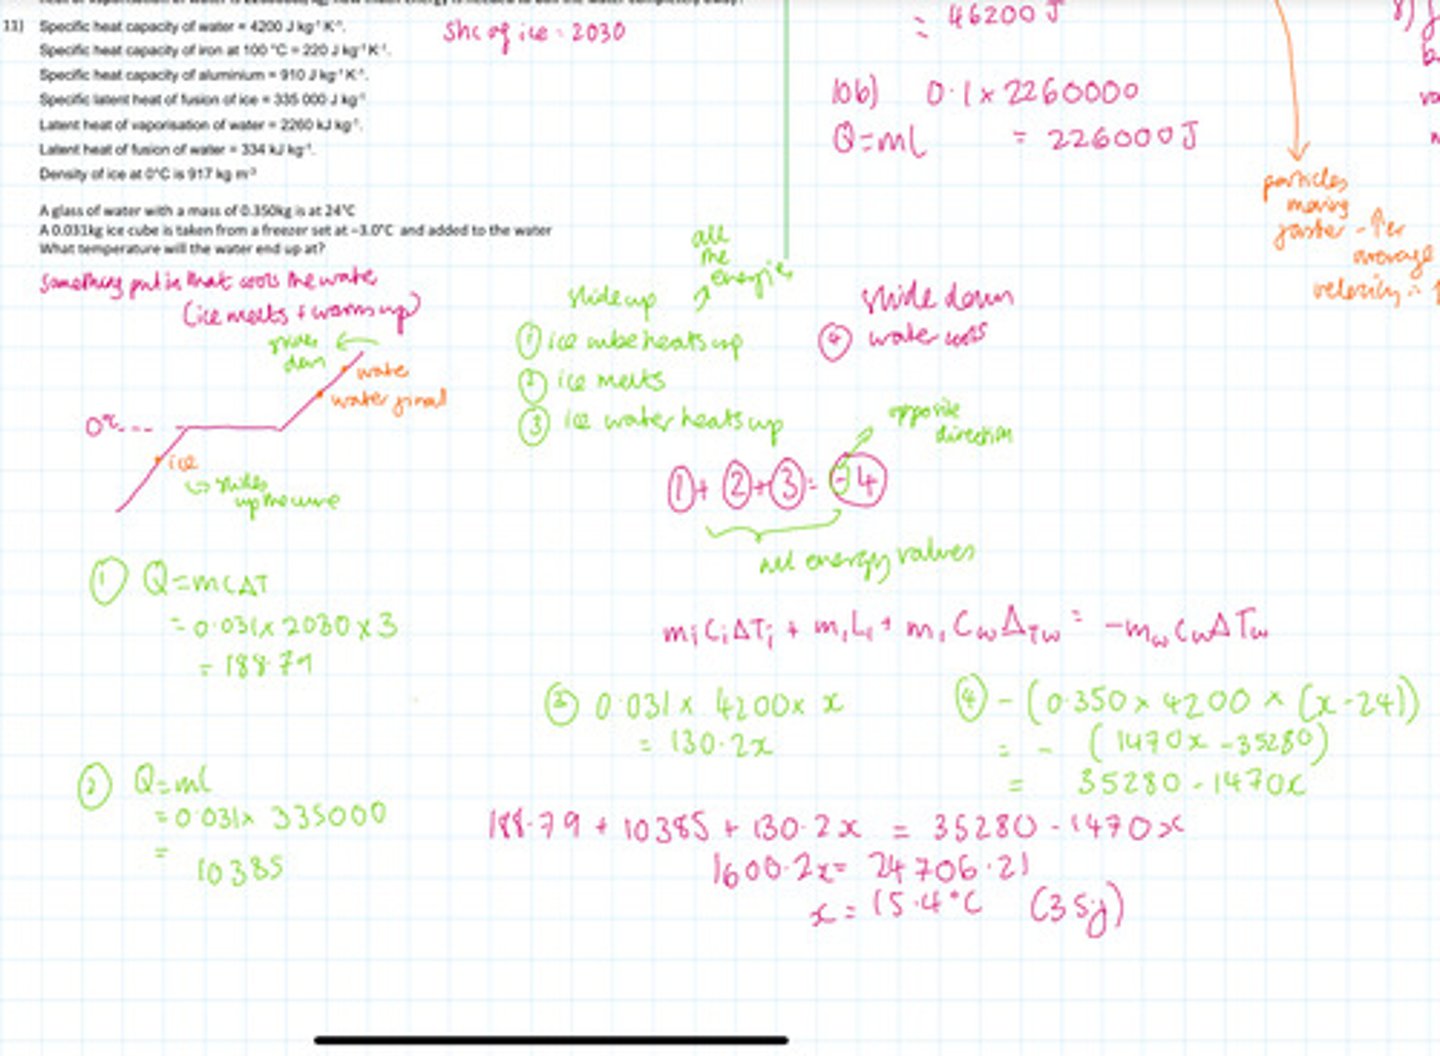 11) Specific heat capacity of water = 4200 J kg⁻¹ K⁻¹.
Specific heat capacity of iron at 100 °C = 220 J kg⁻¹ K⁻¹.
Specific heat capacity of aluminium = 910 J kg⁻¹ K⁻¹.
Specific latent heat of fusion of ice = 335 000 J kg⁻¹
Latent heat of vaporisation of water = 2260 kJ kg⁻¹.
Latent heat of fusion of water = 334 kJ kg⁻¹.
Density of ice at 0°C is 917 kg m⁻³
Shc of ice = 2030
A glass of water with a mass of 0.350kg is at 24°C
A 0.031kg ice cube is taken from a freezer set at –3.0°C and added to the water
What temperature will the water end up at?
= 46200 J
10b) 0.1 x 2260000
Q=ml = 226000J
particles
moving
faster - 
average
velocity
Something put in that cools the water
(ice melts + warms up)
slides
down
water
water final
0°C
ice
slides
up the curve
slide up
all
the
energies
① ice cube heats up
② ice melts
③ ice water heats up
slide down
④ water cools
opposite
direction
① + ② + ③ = -④
all energy values
① Q=mcΔT
= 0.031 x 2030 x 3
= 188.79
② Q=ml
= 0.031 x 335000
= 10385
mᵢCᵢΔTᵢ + mᵢLᵢ + mᵢCwΔTw = -mwCwΔTw
③ 0.031 x 4200 x x
= 130.2x
④ -(0.350 x 4200 x (x-24))
= - (1470x - 35280)
= 35280 - 1470x
188.79 + 10385 + 130.2x = 35280 - 1470x
1600.2x = 24706.21
x = 15.4°C (3sf)